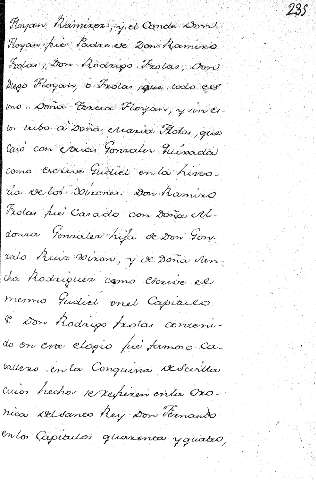 235
Floyan, Ramirez, y el Conde Don
Floyan fue Padre de Don Ramiro
Frolas, Don Rodrigo Frolas, Don
Diego Floyan, o Frolas, que todo es
uno. Doña Teresa Floyan, y en es-
to tubo a Doña Maria Flolas, que
Casó con Gonzalez Quixada
como escrive Gudiel en la histo-
ria de los Girones. Don Ramiro
Frolas fué Casado con Doña Al-
donza Gonzalez hija de Don Gon-
zalo Ruiz Giron, y de Doña San-
cha Rodriguez como escrive el
mesmo Gudiel en el Capitulo
Don Rodrigo Frolas conteni-
do en este elogio fué famoso Ca-
vallero en la Conquista de Sevilla
cuios hechos se refieren en la Cro-
nica del Santo Rey Don Fernando
en los Capitulos quarenta y quatro,